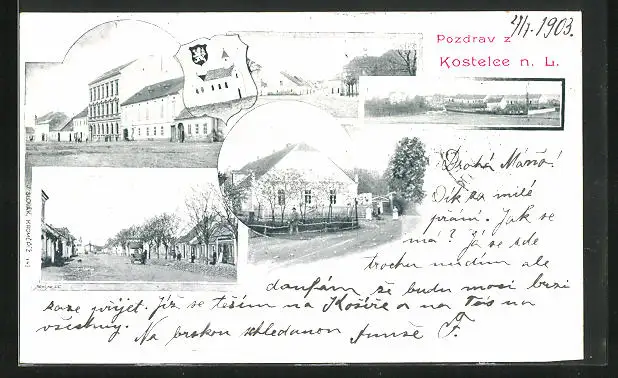 27/7 1903.
Pozdrav z
Kostelce n. L.
Drahá Mářo!
Dík za milé
přání. Jak se
má? Já se zde
trochu nudím ale
doufám že budu moci brzi
zase přijet. Již se těším na Košíře a na Tás na
všechny.
Na brskou shledanou Anuše F.